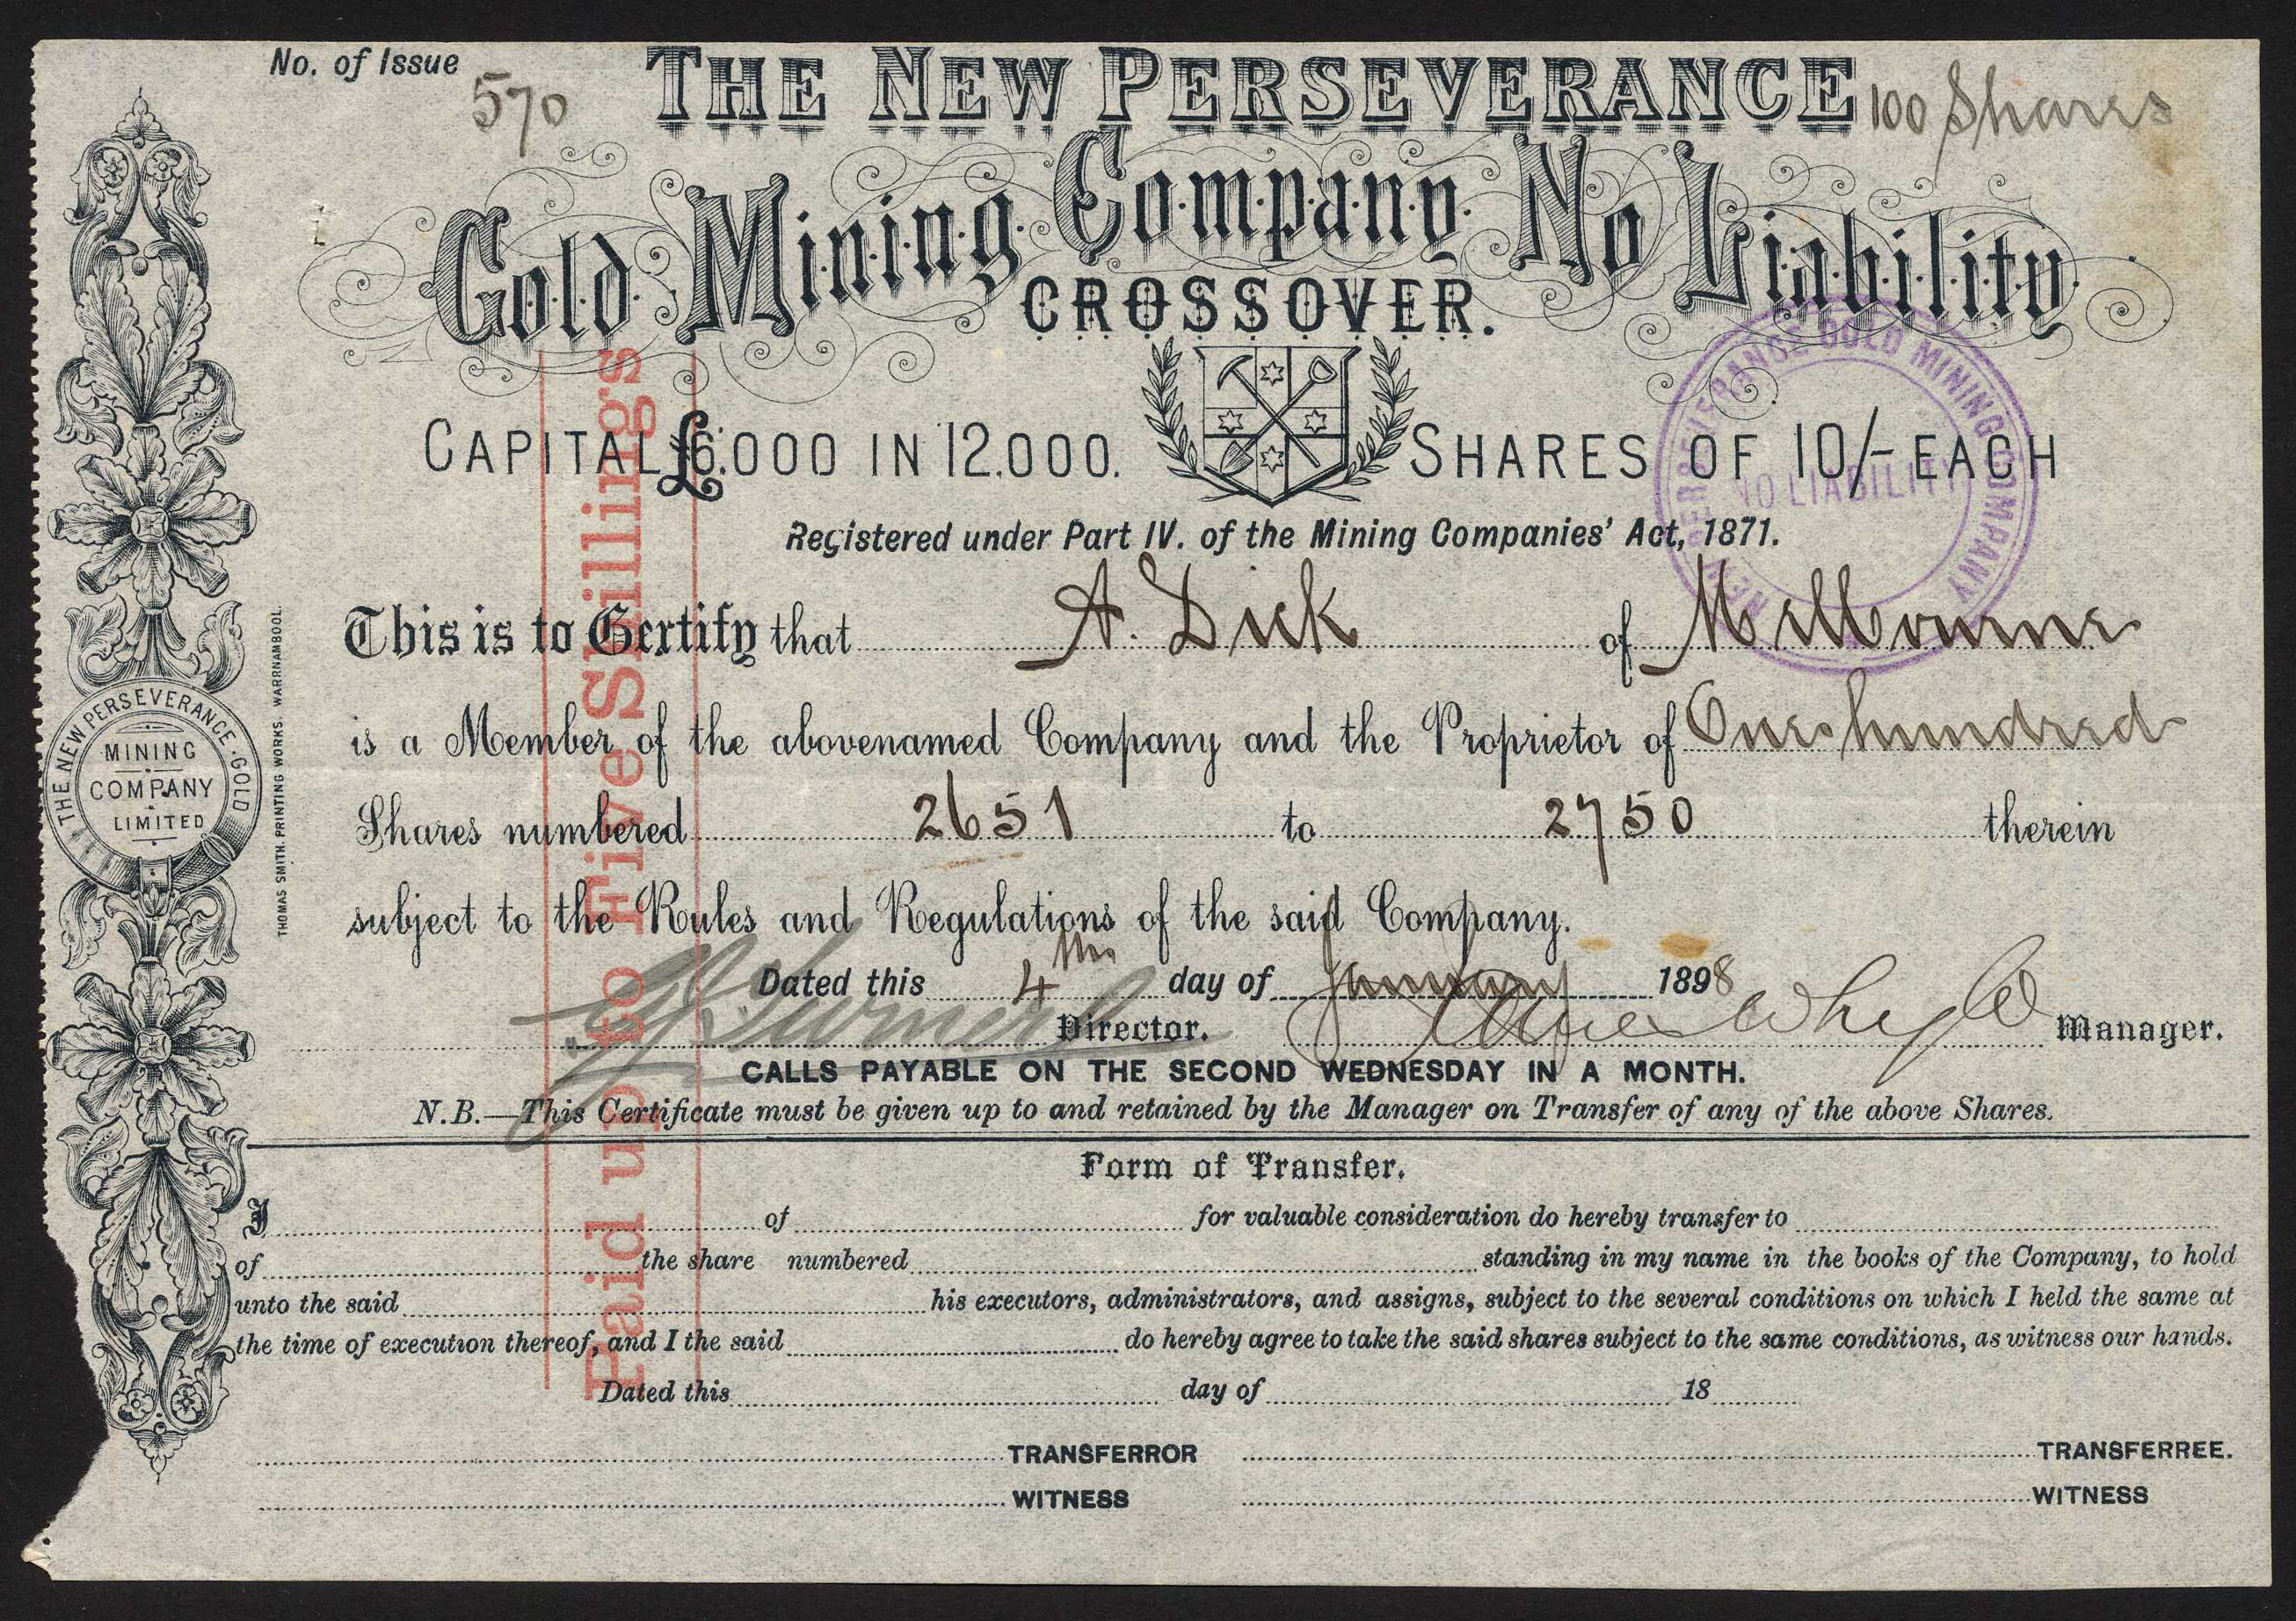 No. of Issue 570
THE NEW PERSEVERANCE
100 Shares
Gold Mining Company No Liability
CROSSOVER.
CAPITAL £6.000 IN 12.000. SHARES OF 10/- EACH
Registered under Part IV. of the Mining Companies' Act, 1871.
This is to Certify that A. Dick of Melbourne
is a Member of the abovenamed Company and the Proprietor of One hundred
Shares numbered 2651 to 2750 therein
subject to the Rules and Regulations of the said Company.
Dated this 4th day of January 1898
Director. Manager.
CALLS PAYABLE ON THE SECOND WEDNESDAY IN A MONTH.
N.B.—This Certificate must be given up to and retained by the Manager on Transfer of any of the above Shares.
Form of Transfer.
I of for valuable consideration do hereby transfer to
of the share numbered standing in my name in the books of the Company, to hold
unto the said his executors, administrators, and assigns, subject to the several conditions on which I held the same at
the time of execution thereof, and I the said do hereby agree to take the said shares subject to the same conditions, as witness our hands.
Dated this day of 18
TRANSFERROR TRANSFERREE.
WITNESS WITNESS
Paid up to Five Shillings
NEW PERSEVERANCE GOLD MINING COMPANY
NO LIABILITY
THE NEW PERSEVERANCE · GOLD
MINING
COMPANY
LIMITED
THOMAS SMITH. PRINTING WORKS. WARRNAMBOOL.